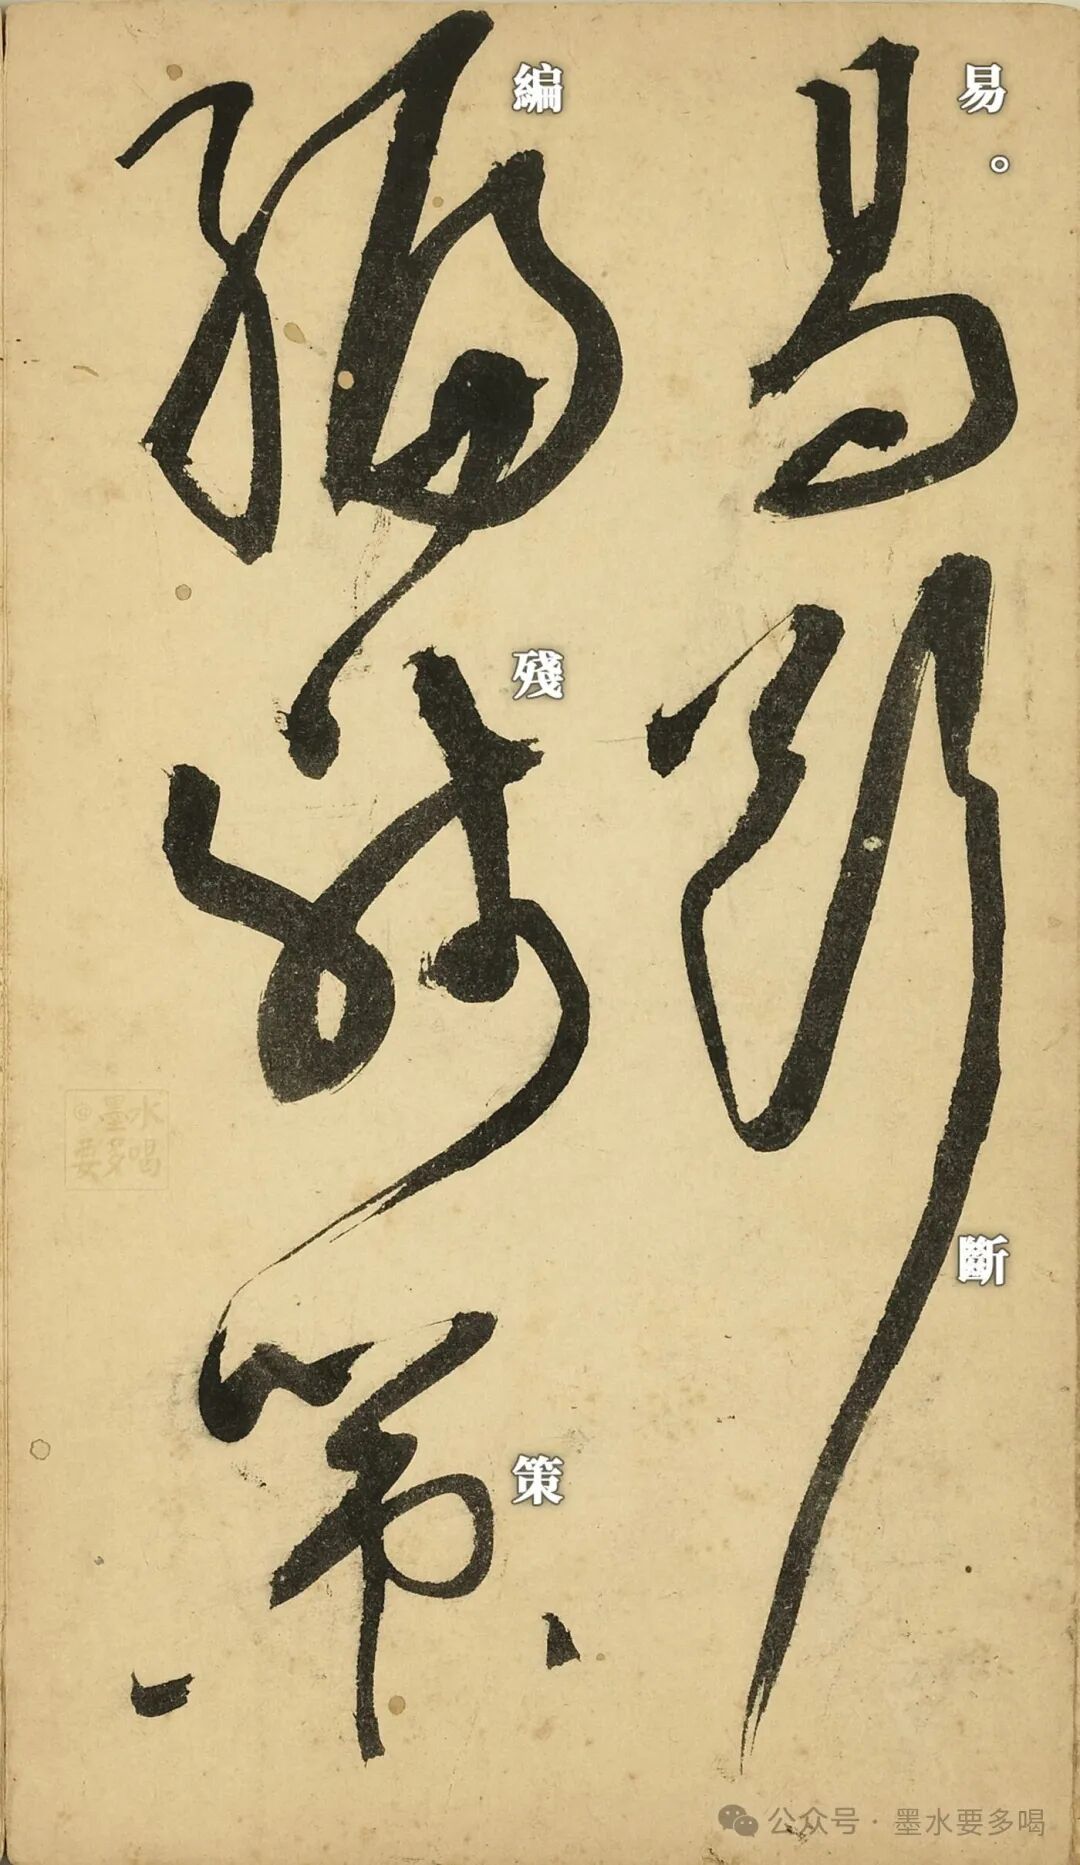 易。斷
編殘策
@墨水
要多喝
公众号·墨水要多喝